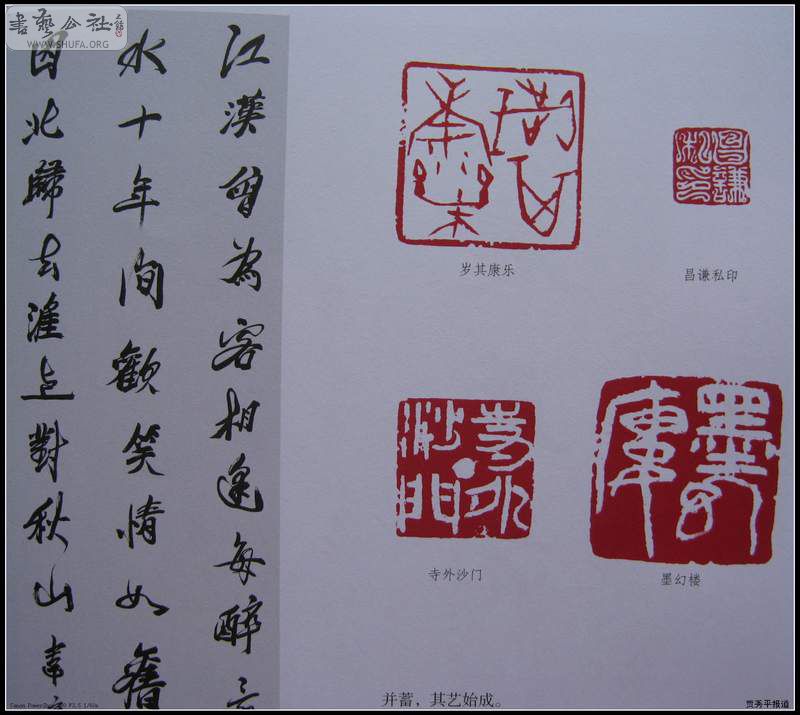 書藝公社
WWW.SHUFA.ORG
江漢曾為客相逢每醉
水十年間歡笑情如舊
因北歸去淮上對秋山
岁其康乐
昌謙私印
昌谦私印
寺外沙门
墨幻楼
并蓄，其艺始成。
贾秀平报道